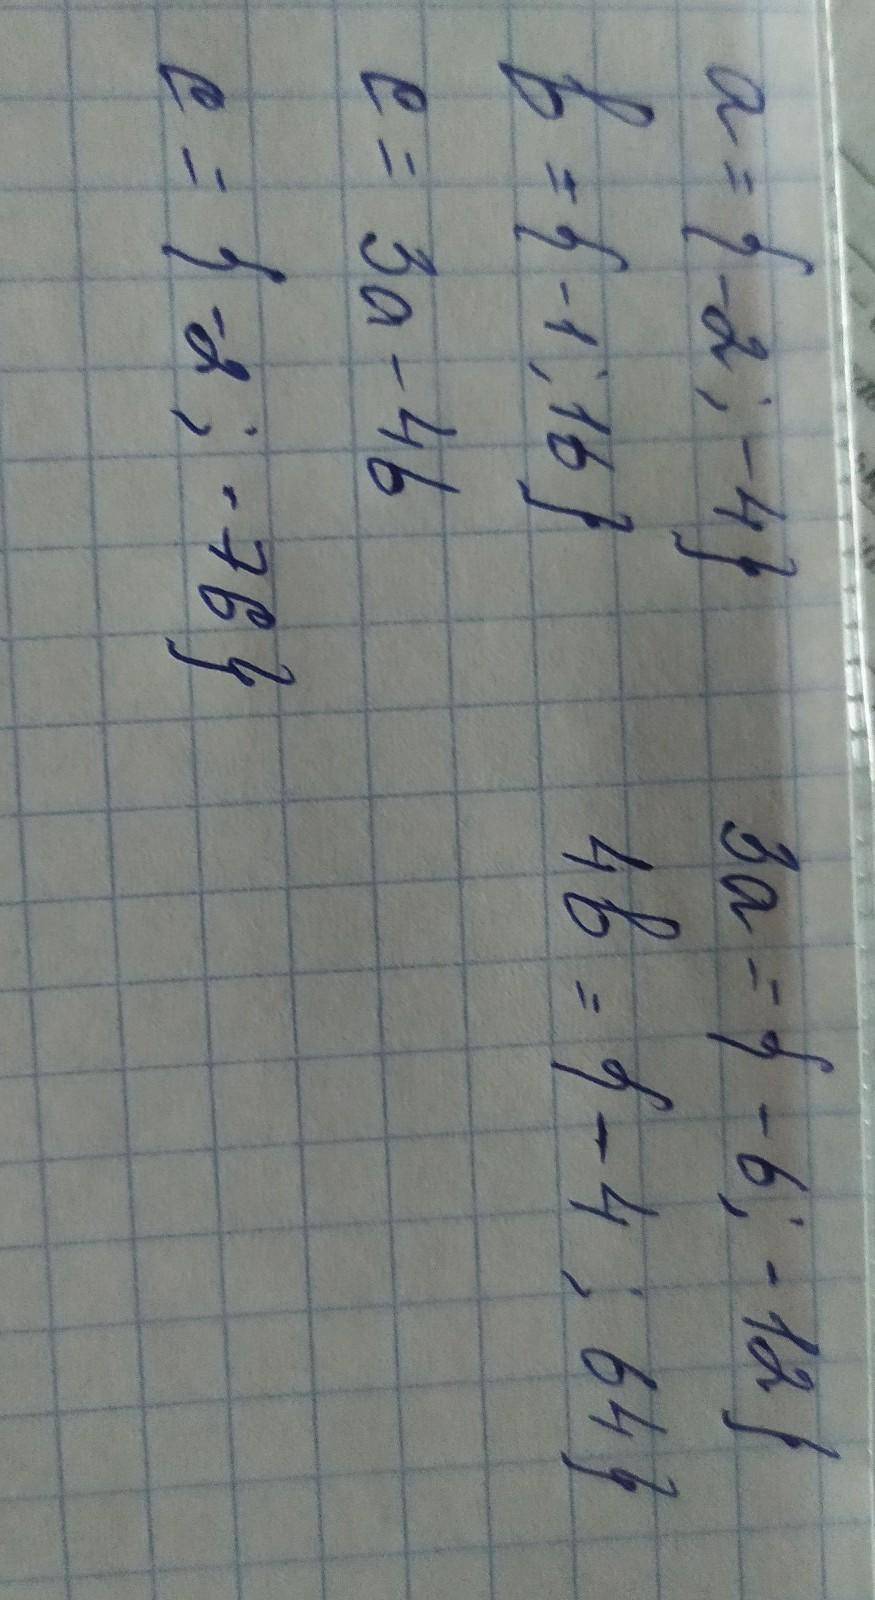 a = {-2; -4}
3a = {-6; -12}
b = {-1; 16}
4b = {-4; 64}
c = 3a - 4b
c = {-2; -76}